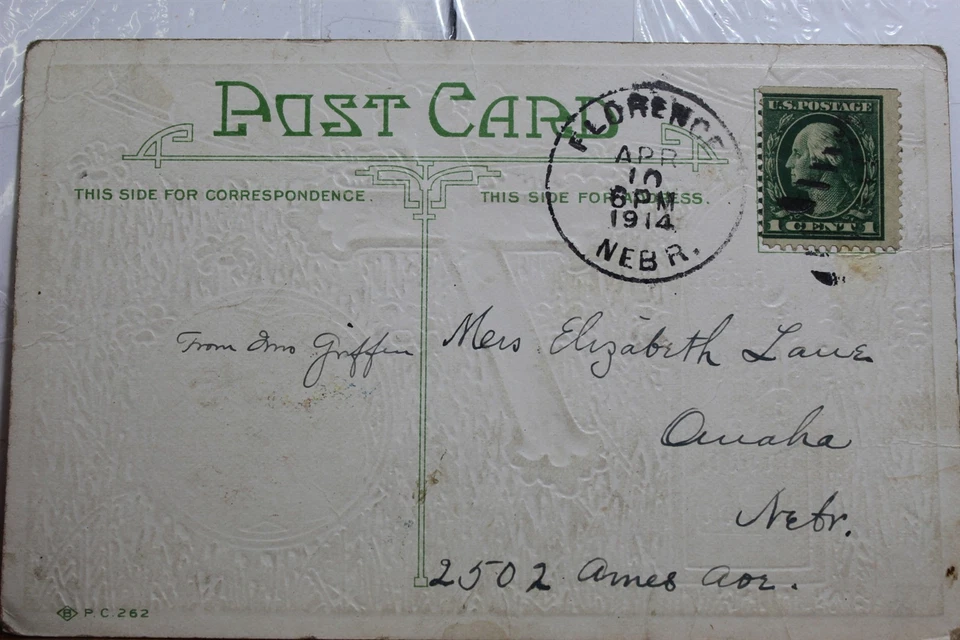 POST CARD
THIS SIDE FOR CORRESPONDENCE.
THIS SIDE FOR ADDRESS.
FLORENCE
APR
10
6 PM
1914
NEBR.
U.S. POSTAGE
1 CENT 1
From Jno Griffin
Mrs Elizabeth Lane
Omaha
Nebr.
2502 Ames Ave.
B P.C. 262